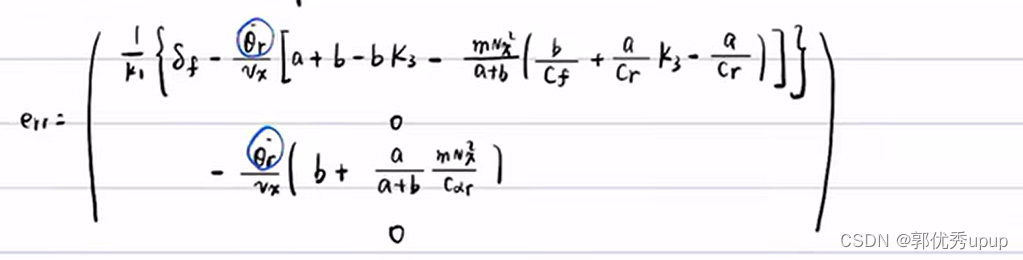 err = ( 1/k₁ { δf - θ̇r/vx [ a + b - bk₃ - mvx²/(a+b) ( b/Cf + a/Cr k₃ - a/Cr ) ] } )
0
- θ̇r/vx ( b + a/(a+b) mvx²/Cαr )
0
CSDN @郭优秀upup